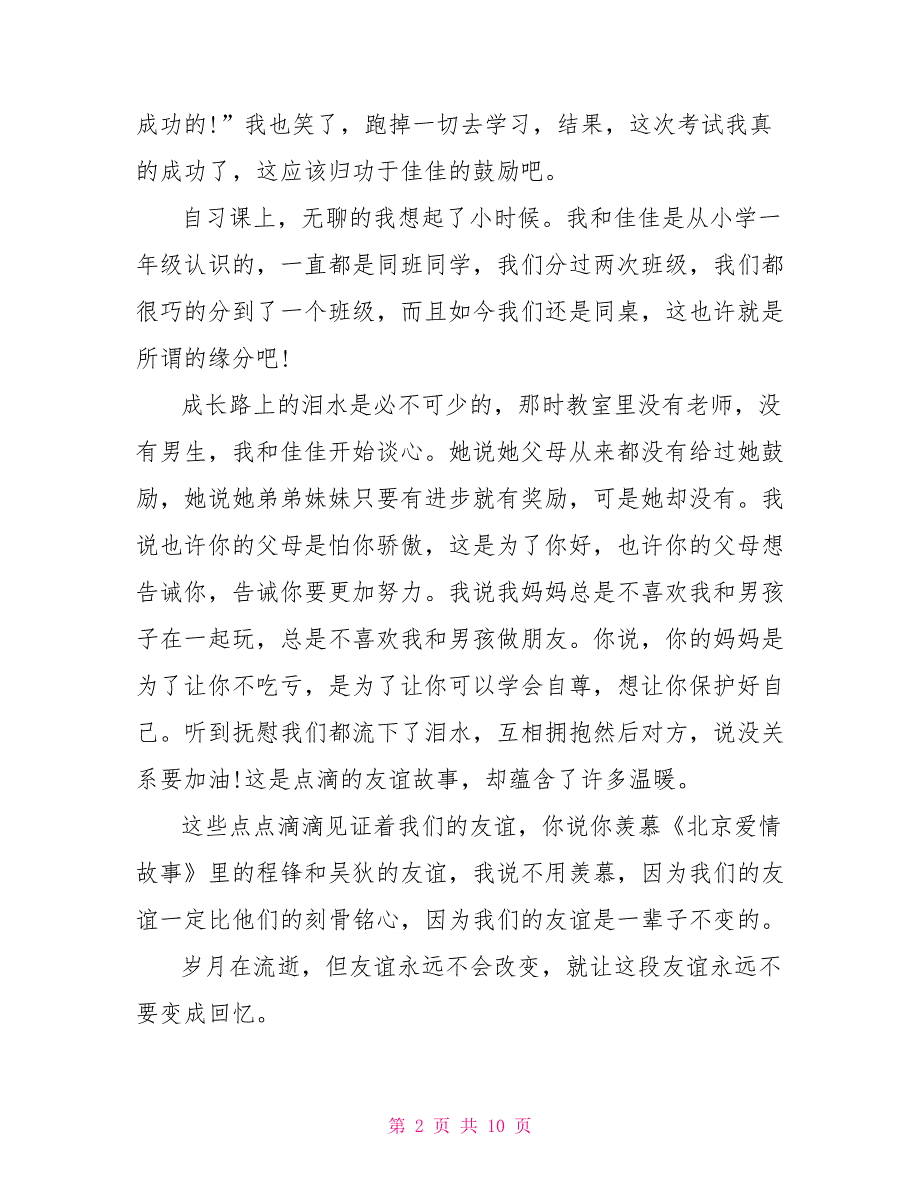 成功的!”我也笑了，跑掉一切去学习，结果，这次考试我真
的成功了，这应该归功于佳佳的鼓励吧。
自习课上，无聊的我想起了小时候。我和佳佳是从小学一
年级认识的，一直都是同班同学，我们分过两次班级，我们都
很巧的分到了一个班级，而且如今我们还是同桌，这也许就是
所谓的缘分吧!
成长路上的泪水是必不可少的，那时教室里没有老师，没
有男生，我和佳佳开始谈心。她说她父母从来都没有给过她鼓
励，她说她弟弟妹妹只要有进步就有奖励，可是她却没有。我
说也许你的父母是怕你骄傲，这是为了你好，也许你的父母想
告诫你，告诫你要更加努力。我说我妈妈总是不喜欢我和男孩
子在一起玩，总是不喜欢我和男孩做朋友。你说，你的妈妈是
为了让你不吃亏，是为了让你可以学会自尊，想让你保护好自
己。听到抚慰我们都流下了泪水，互相拥抱然后对方，说没关
系要加油!这是点滴的友谊故事，却蕴含了许多温暖。
这些点点滴滴见证着我们的友谊，你说你羡慕《北京爱情
故事》里的程锋和吴狄的友谊，我说不用羡慕，因为我们的友
谊一定比他们的刻骨铭心，因为我们的友谊是一辈子不变的。
岁月在流逝，但友谊永远不会改变，就让这段友谊永远不
要变成回忆。
第 2 页 共 10 页